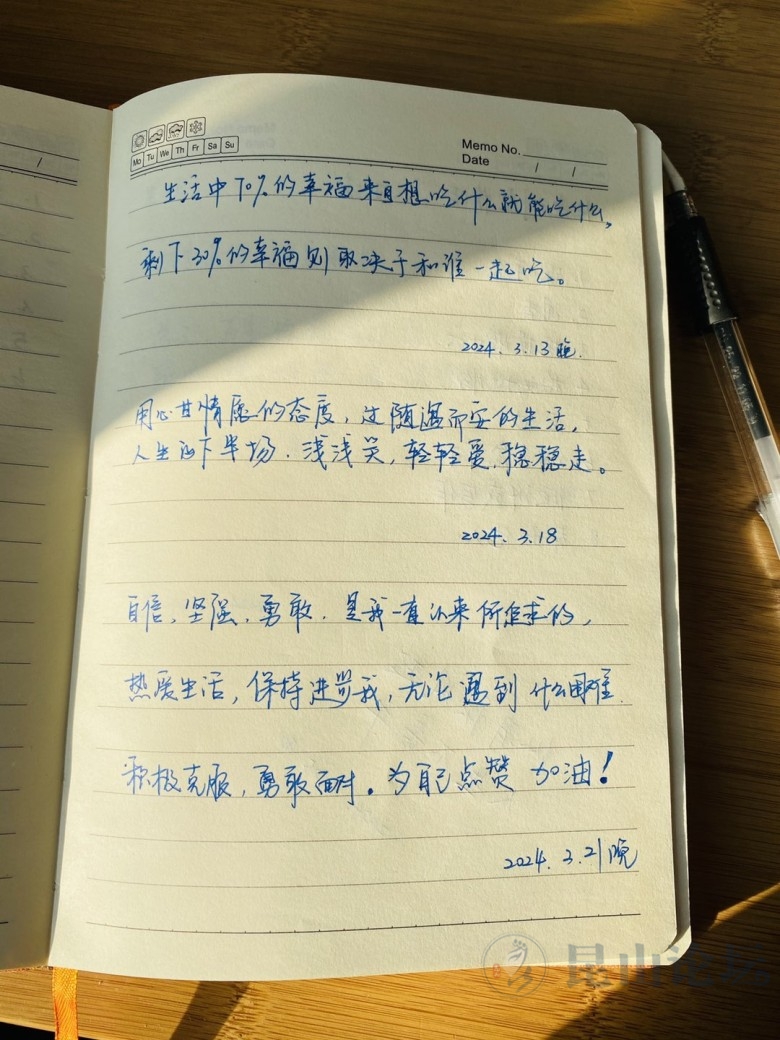 Mo Tu We Th Fr Sa Su
Memo No.
Date / /
生活中70%的幸福来自想吃什么就能吃什么,
剩下30%的幸福则取决于和谁一起吃。
2024. 3.13晚.
用心甘情愿的态度,过随遇而安的生活,
人生的下半场.浅浅笑,轻轻爱.稳稳走。
2024. 3.18
自信,坚强,勇敢.是我一直以来所追求的,
热爱生活,保持进步我,无论遇到什么困难.
积极克服,勇敢面对.为自己点赞 加油!
2024. 3.21晚
昆山论坛